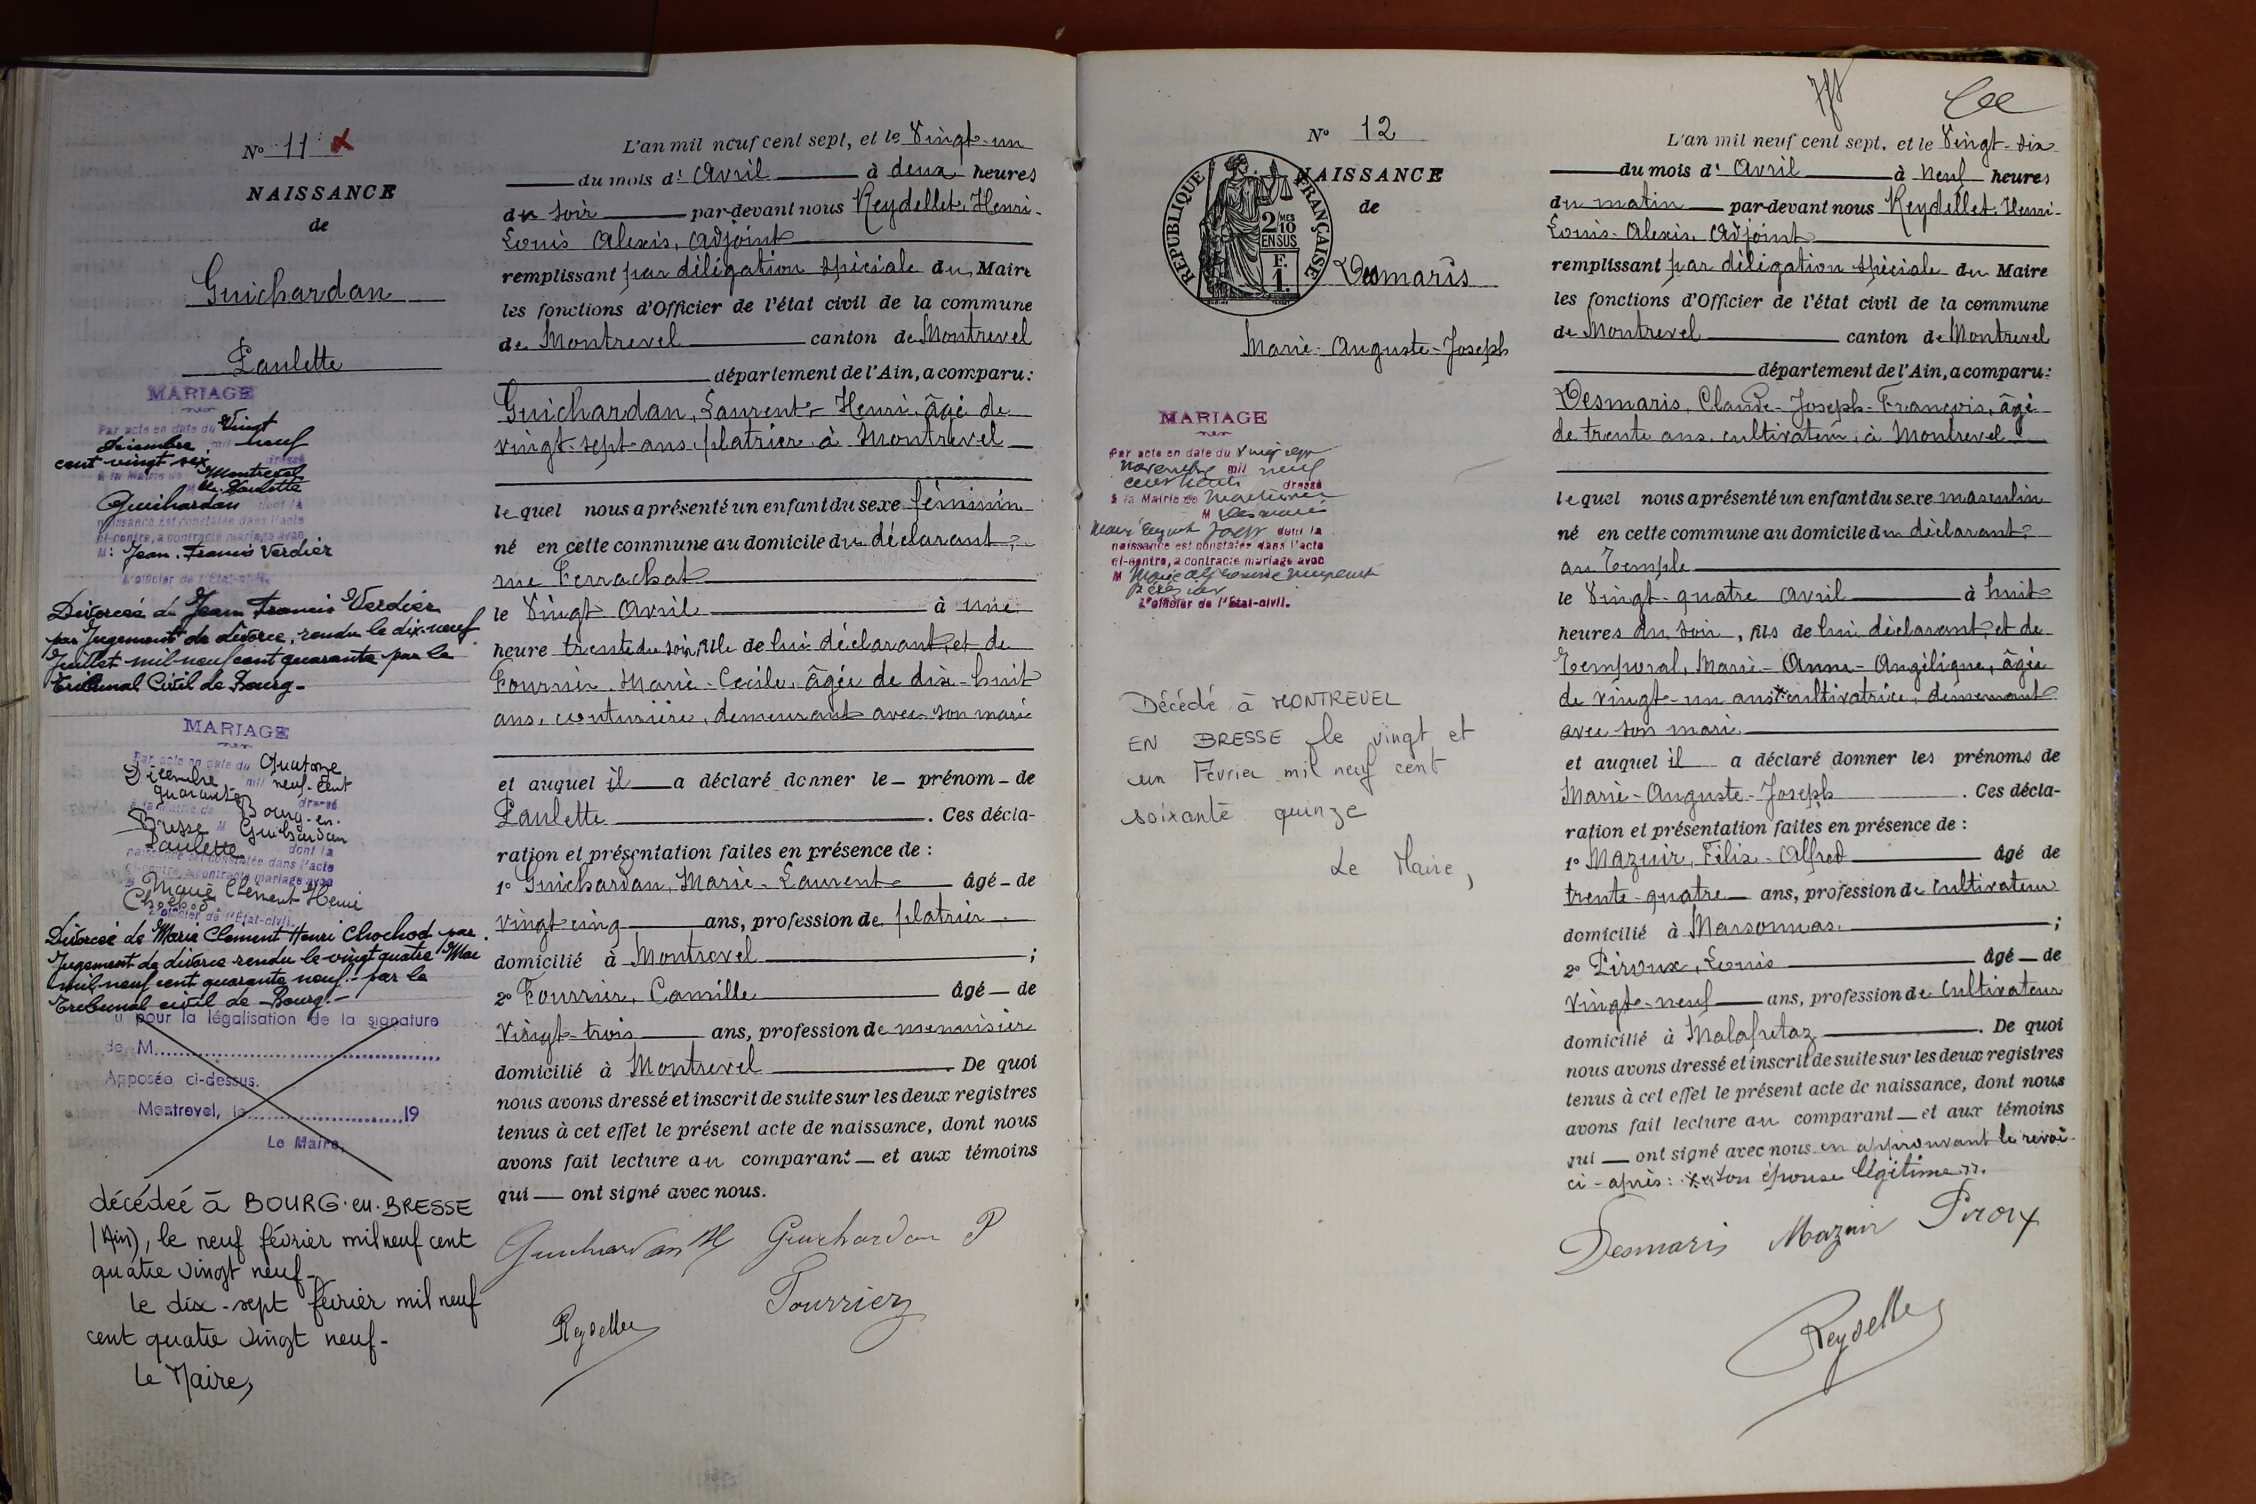 N° 11
NAISSANCE
de
Guichardan
Paulette
MARIAGE
Par acte en date du Vingt
Décembre mil neuf
cent vingt six dressé
à la Mairie de Montrevel
Melle Paulette
Guichardan dont la
naissance est constatée dans l'acte
ci-contre, a contracté mariage avec
M: Jean Francis Verdier
L'officier de l'Etat-civil.
Divorcée de Jean Francis Verdier
par Jugement de divorce, rendu le dix-neuf
Juillet mil neuf cent quarante par le
Tribunal Civil de Bourg-
MARIAGE
Par acte en date du Quatorze
Décembre mil neuf-cent
quarante dressé
à la Mairie de Bourg-en-
Bresse M Guichardan
Paulette dont la
naissance est constatée dans l'acte
ci-contre, a contracté mariage avec
M Marie Clément Henri
Chochod
L'officier de l'Etat-civil.
Divorcée de Marie Clément Henri Chochod par
Jugement de divorce rendu le vingt quatre Mai
mil neuf cent quarante neuf.- par le
Tribunal civil de Bourg.-
u pour la légalisation de la signature
de M
Apposée ci-dessus.
Montrevel, le 19
Le Maire,
décédée à BOURG-en-BRESSE
(Ain), le neuf février mil neuf cent
quatre vingt neuf-
le dix-sept février mil neuf
cent quatre vingt neuf-
Le Maire,
L'an mil neuf cent sept, et le Vingt-un
du mois d' Avril à deux heures
du soir par-devant nous Reydellet, Henri-
Louis Alexis, Adjoint
remplissant par délégation spéciale du Maire
les fonctions d'Officier de l'état civil de la commune
de Montrevel canton de Montrevel
département de l'Ain, a comparu:
Guichardan, Laurent-Henri, âgé de
vingt-sept ans, platrier, à Montrevel
lequel nous a présenté un enfant du sexe féminin
né en cette commune au domicile du déclarant,
rue Ferrachat
le Vingt Avril à une
heure trente du soir, fille de lui déclarant, et de
Fourrier, Marie-Cécile, âgée de dix-huit
ans, couturière, demeurant avec son mari
et auquel il a déclaré donner le prénom de
Paulette. Ces décla-
ration et présentation faites en présence de :
1° Guichardan, Marie-Laurent âgé de
vingt cinq ans, profession de platrier
domicilié à Montrevel ;
2° Fourrier, Camille âgé de
Vingt-trois ans, profession de menuisier
domicilié à Montrevel. De quoi
nous avons dressé et inscrit de suite sur les deux registres
tenus à cet effet le présent acte de naissance, dont nous
avons fait lecture au comparant et aux témoins
qui ont signé avec nous.
Guichardan H Guichardan P
Fourrier
Reydellet
N° 12
NAISSANCE
de
RÉPUBLIQUE FRANÇAISE
2/10 MES
EN SUS
F.
1.
Desmaris
Marie-Auguste-Joseph
MARIAGE
Par acte en date du Vingt sept
novembre mil neuf
cent trente dressé
à la Mairie de
M Desmaris
Marie Auguste Joseph dont la
naissance est constatée dans l'acte
ci-contre, a contracté mariage avec
M Marie
L'officier de l'Etat-civil.
Décédé à MONTREVEL
EN BRESSE le vingt et
un Février mil neuf cent
soixante quinze
Le Maire,
L'an mil neuf cent sept, et le Vingt-six
du mois d' Avril à neuf heures
du matin par-devant nous Reydellet, Henri-
Louis-Alexis, Adjoint
remplissant par délégation spéciale du Maire
les fonctions d'Officier de l'état civil de la commune
de Montrevel canton de Montrevel
département de l'Ain, a comparu:
Desmaris, Claude-Joseph-François, âgé
de trente ans, cultivateur, à Montrevel
lequel nous a présenté un enfant du sexe masculin
né en cette commune au domicile du déclarant,
au Temple
le Vingt-quatre Avril à huit
heures du soir, fils de lui déclarant, et de
Temporal, Marie-Anne-Angélique, âgée
de vingt-un ans, cultivatrice, demeurant
avec son mari
et auquel il a déclaré donner les prénoms de
Marie-Auguste-Joseph. Ces décla-
ration et présentation faites en présence de :
1° Mazuir, Félix-Alfred âgé de
trente-quatre ans, profession de cultivateur
domicilié à Marsonnas ;
2° Piroux, Louis âgé de
Vingt-neuf ans, profession de Cultivateur
domicilié à Malafretaz. De quoi
nous avons dressé et inscrit de suite sur les deux registres
tenus à cet effet le présent acte de naissance, dont nous
avons fait lecture au comparant et aux témoins
qui ont signé avec nous en approuvant le renvoi
ci-après: "son épouse légitime".
Desmaris Mazuir Piroux
Reydellet